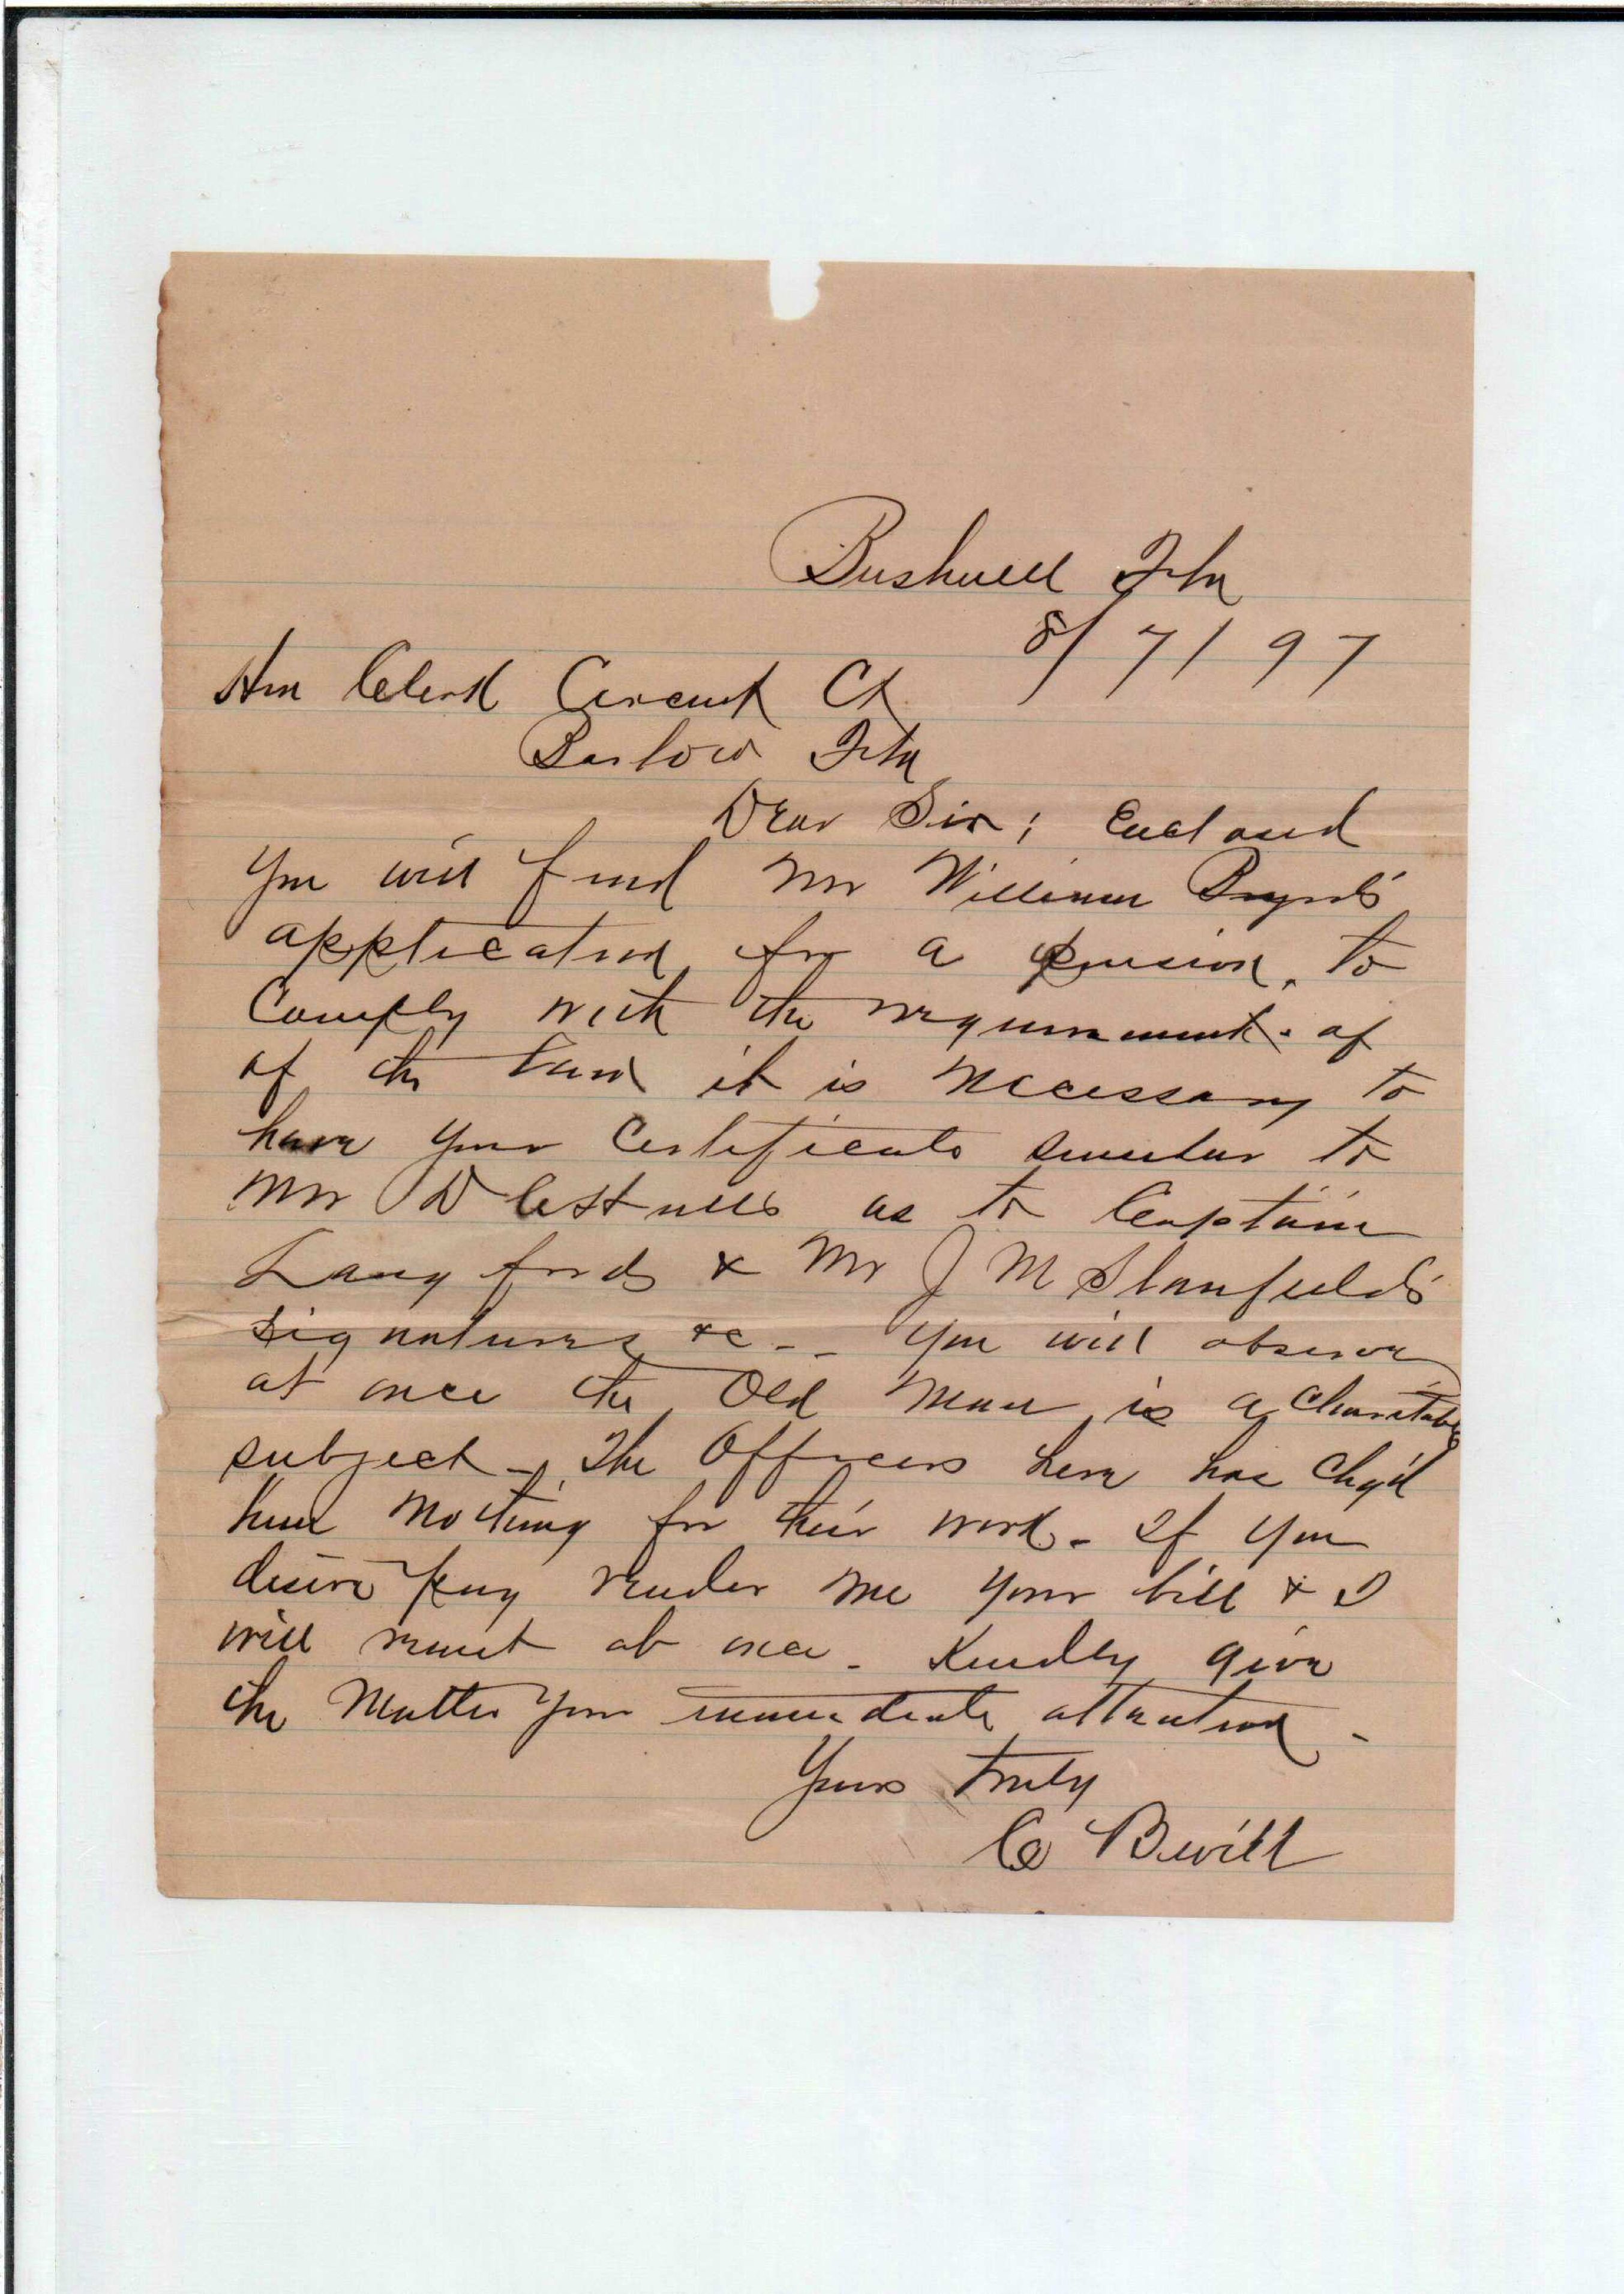 Bushnell Fla
8/7/97
Hon Clerk Circuit Ct
Bartow Fla
Dear Sir; Enclosed
You will find Mr William Byrd's
application for a pension, to
Comply with the requirements of
of the Law it is necessary to
have your Certificate similar to
Mr as to Captain
Langfords & Mr J M Stanfield's
signatures &c -- You will observe
at once the Old man is a Charitable
subject - The Officers here has Chg'd
him nothing for their work - If you
desire pay render me your bill & I
will remit at once - Kindly give
the matter your immediate attention -
Yours truly
C Bevill